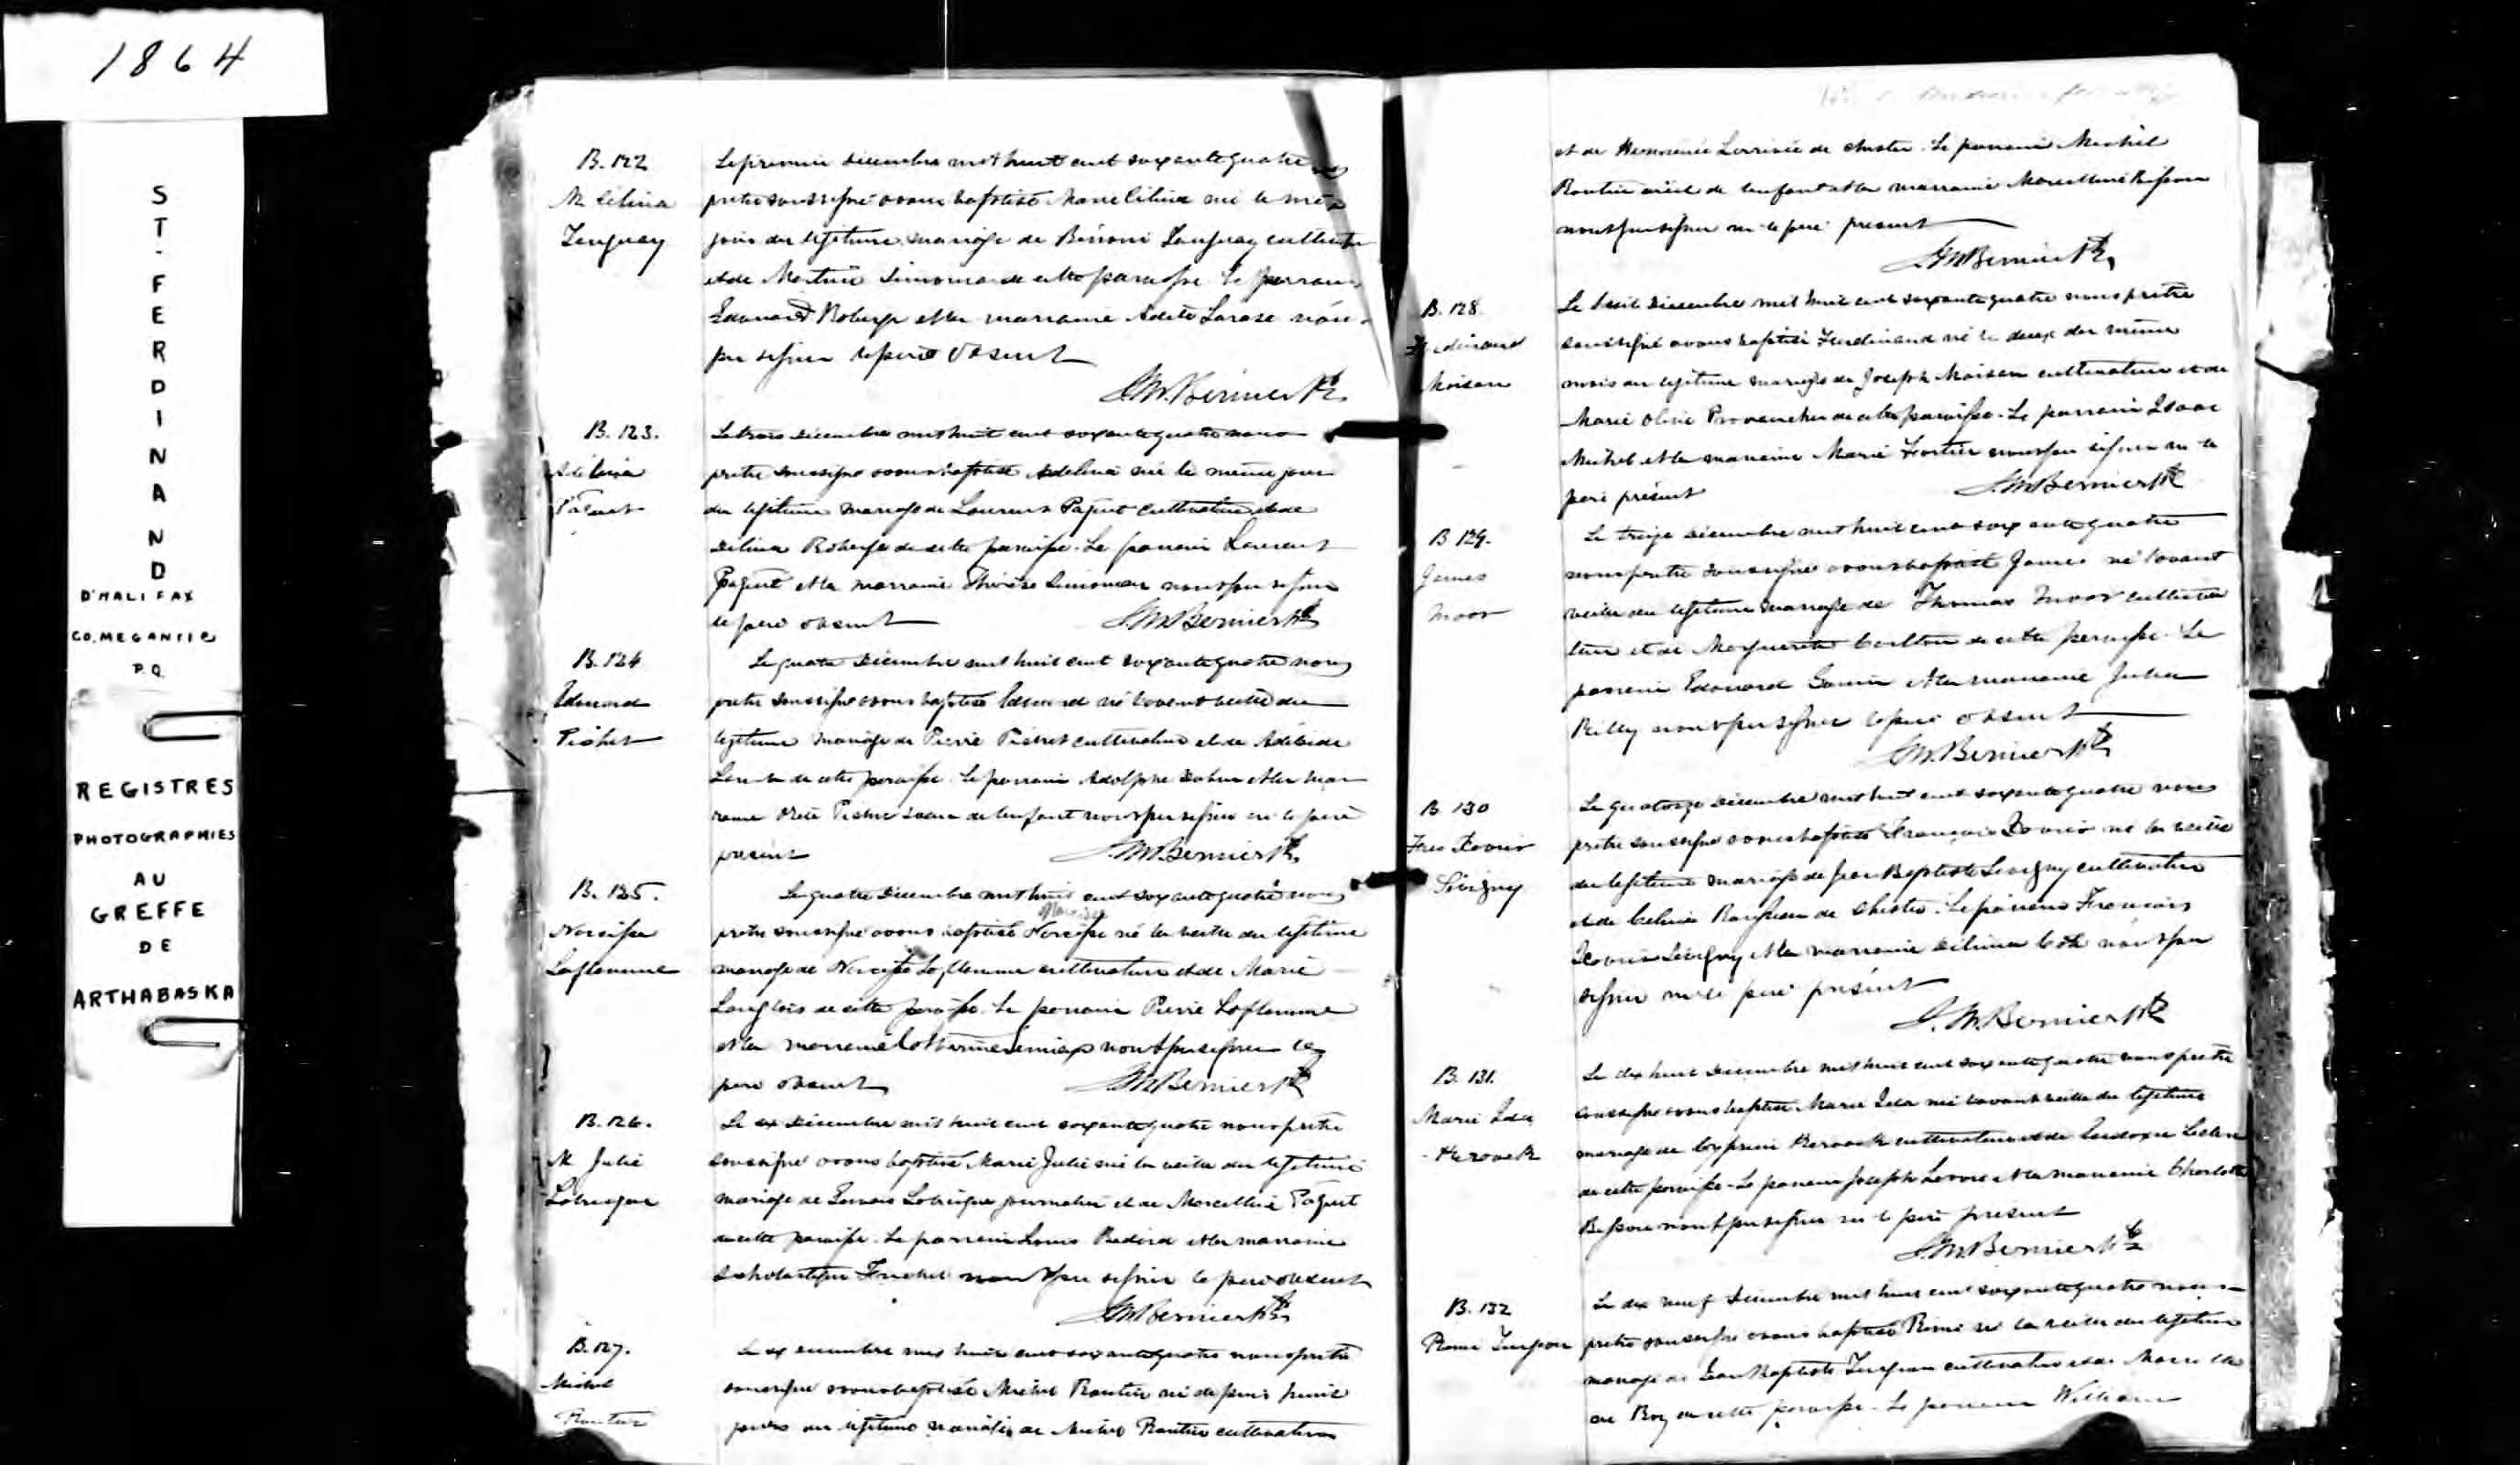 1864
ST. FERDINAND
D'HALIFAX
CO. MEGANTIC
P.Q.
REGISTRES
PHOTOGRAPHIES
AU
GREFFE
DE
ARTHABASKA
B. 122
M Celina
Tanguay
Le premier decembre mil huit cent soixante quatre nous
pretre soussigné avons baptisé Marie Celina née le même
jour du legitime mariage de Bénoni Tanguay cultivateur
et de Martine Simoneau de cette paroisse. Le parrain
Edouard Roberge et la marraine Adèle Larose n'ont
pu signer le père absent
J.M. Bernier Ptre
B. 123.
Adelina
Paquet
Le trois decembre mil huit cent soixante quatre nous
pretre soussigné avons baptisé Adelina née le même jour
du legitime mariage de Laurent Paquet cultivateur et de
Delina Roberge de cette paroisse. Le parrain Laurent
Paquet et la marraine Thérèse Simoneau n'ont pu signer
le père absent
J.M. Bernier Ptre
B. 124
Edouard
Pichet
Le quatre decembre mil huit cent soixante quatre nous
pretre soussigné avons baptisé Edouard né l'avant veille du
legitime mariage de Pierre Pichet cultivateur et de Adelaide
de cette paroisse. Le parrain Adolphe et la mar
raine Pichet soeur de l'enfant n'ont pu signer ni le père
présent
J.M. Bernier Ptre
B. 125.
Narcisse
Laflamme
Le quatre decembre mil huit cent soixante quatre nous
Narcisse
pretre soussigné avons baptisé Narcisse né la veille du legitime
mariage de Narcisse Laflamme cultivateur et de Marie
Langlois de cette paroisse. Le parrain Pierre Laflamme
et la marraine Catherine n'ont pu signer le
père absent
J.M. Bernier Ptre
B. 126.
M Julie
Labrecque
Le six decembre mil huit cent soixante quatre nous pretre
soussigné avons baptisé Marie Julie née la veille du legitime
mariage de Labrecque journalier et de Marcelline Paquet
de cette paroisse. Le parrain Louis Bedard et la marraine
Scholastique n'ont pu signer le père absent
J.M. Bernier Ptre
B. 127.
Michel
Routier
Le decembre mil huit cent soixante quatre nous pretre
soussigné avons baptisé Michel Routier né depuis huit
jours du legitime mariage de Michel Routier cultivateur
et de de Chester. Le parrain Michel
Routier de l'enfant et la marraine Marcelline
n'ont pu signer ni le père present
J.M. Bernier Ptre
B. 128.
Ferdinand
Moisan
Le huit decembre mil huit cent soixante quatre nous pretre
soussigné avons baptisé Ferdinand né le deux du même
mois du legitime mariage de Joseph Moisan cultivateur et de
Marie Olive Provencher de cette paroisse. Le parrain Isaac
et la marraine Marie Fortier n'ont pu signer ni le
père présent
J.M. Bernier Ptre
B 129.
James
Moor
Le treize decembre mil huit cent soixante quatre
nous pretre soussigné avons baptisé James né l'avant
veille du legitime mariage de Thomas Moor cultiva
teur et de Marguerite de cette paroisse. Le
parrain Edouard et la marraine Julia
Reilly n'ont pu signer le père absent
J.M. Bernier Ptre
B 130
Frs Xavier
Sévigny
Le quatorze decembre mil huit cent soixante quatre nous
pretre soussigné avons baptisé François Xavier né la veille
du legitime mariage de Jean Baptiste Sevigny cultivateur
et de de Chester. Le parrain François
Xavier Sevigny et la marraine Delima n'ont pu
signer ni le père présent
J.M. Bernier Ptre
B. 131.
Marie Ida
Le dix huit decembre mil huit cent soixante quatre nous pretre
soussigné avons baptisé Marie Ida née l'avant veille du legitime
mariage de Cyprien cultivateur et de Leclerc
de cette paroisse. Le parrain Joseph et la marraine Charlotte
n'ont pu signer ni le père present
J.M. Bernier Ptre
B. 132
Remi Turgeon
Le dix neuf decembre mil huit cent soixante quatre nous
pretre soussigné avons baptisé Rémi né la veille du legitime
mariage de Jean Baptiste Turgeon cultivateur et de Marie
Roy de cette paroisse. Le parrain William